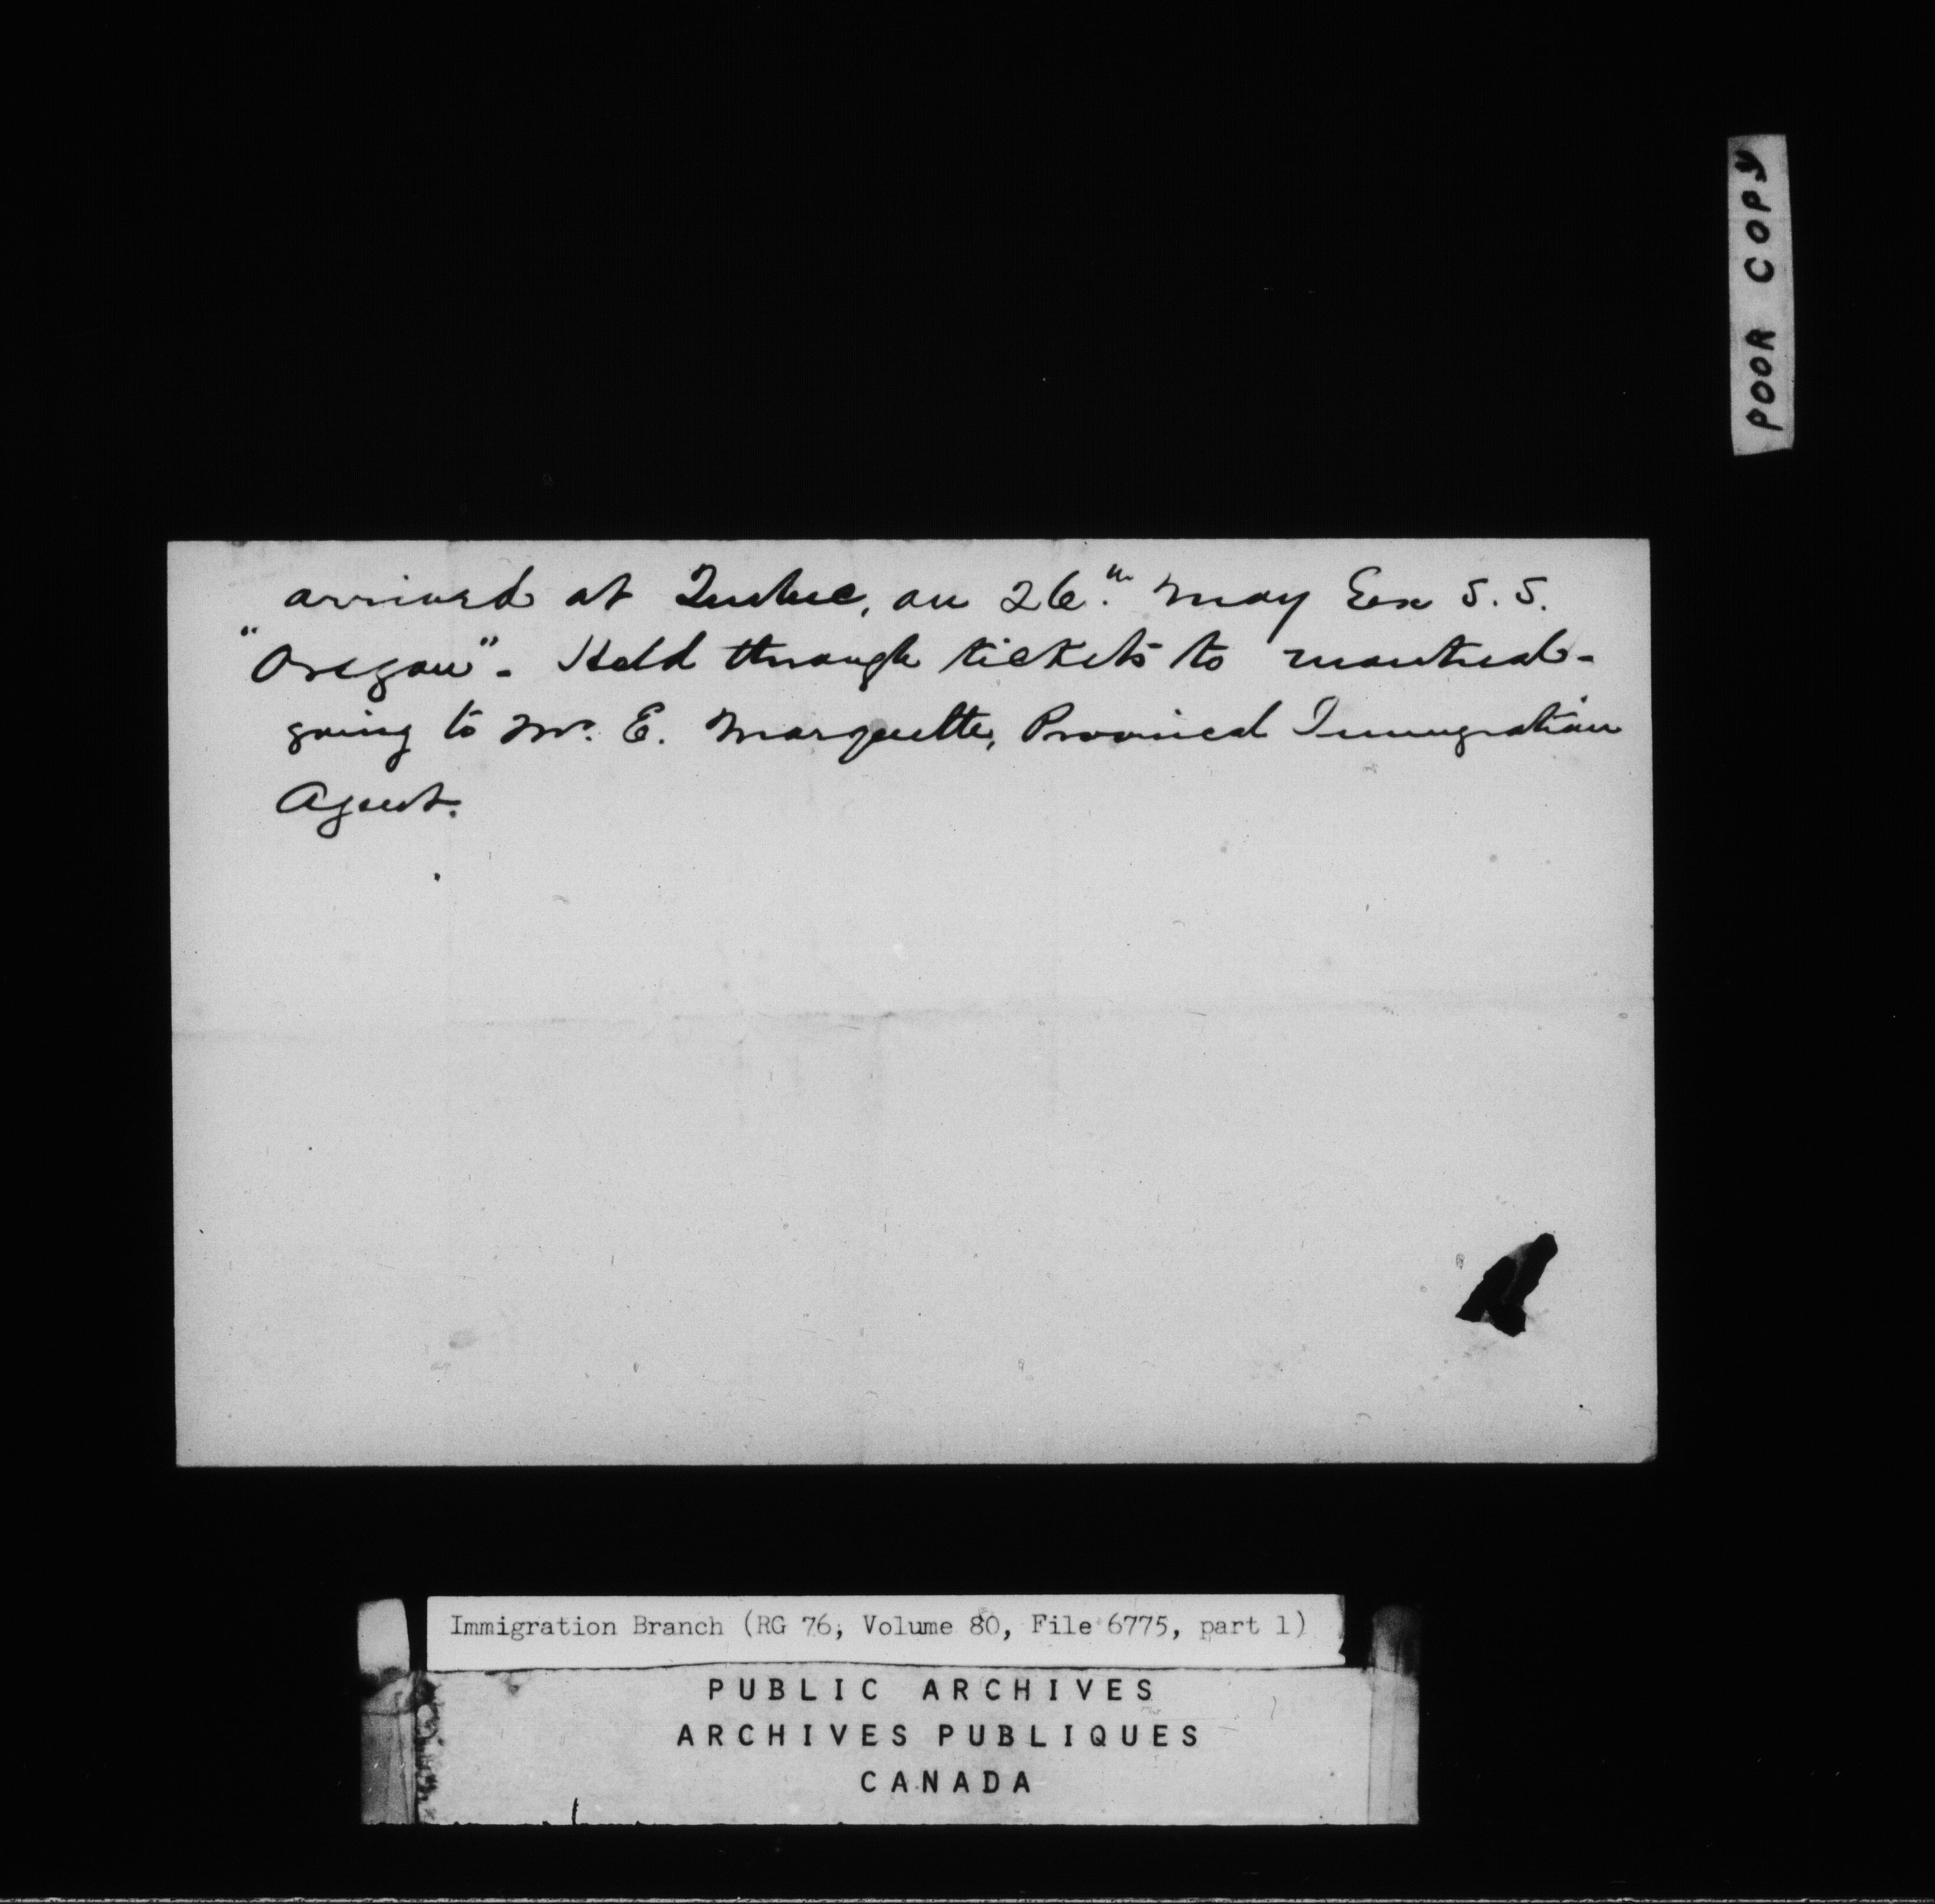 POOR COPY
arrived at Quebec, on 26th May Ex S. S.
"Oregon". Held through tickets to Montreal -
going to Mr. E. Marquette, Provincal Immigration
Agent.
Immigration Branch (RG 76, Volume 80, File 6775, part 1)
PUBLIC ARCHIVES
ARCHIVES PUBLIQUES
CANADA